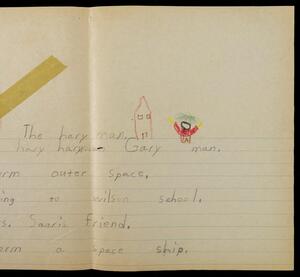 The hary man.
hary hary Gary man.
rm outer space.
ing to wilson school.
s. Saaris friend.
erm a space ship.